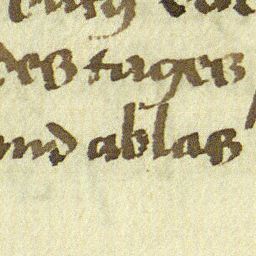 des tages
und ablas